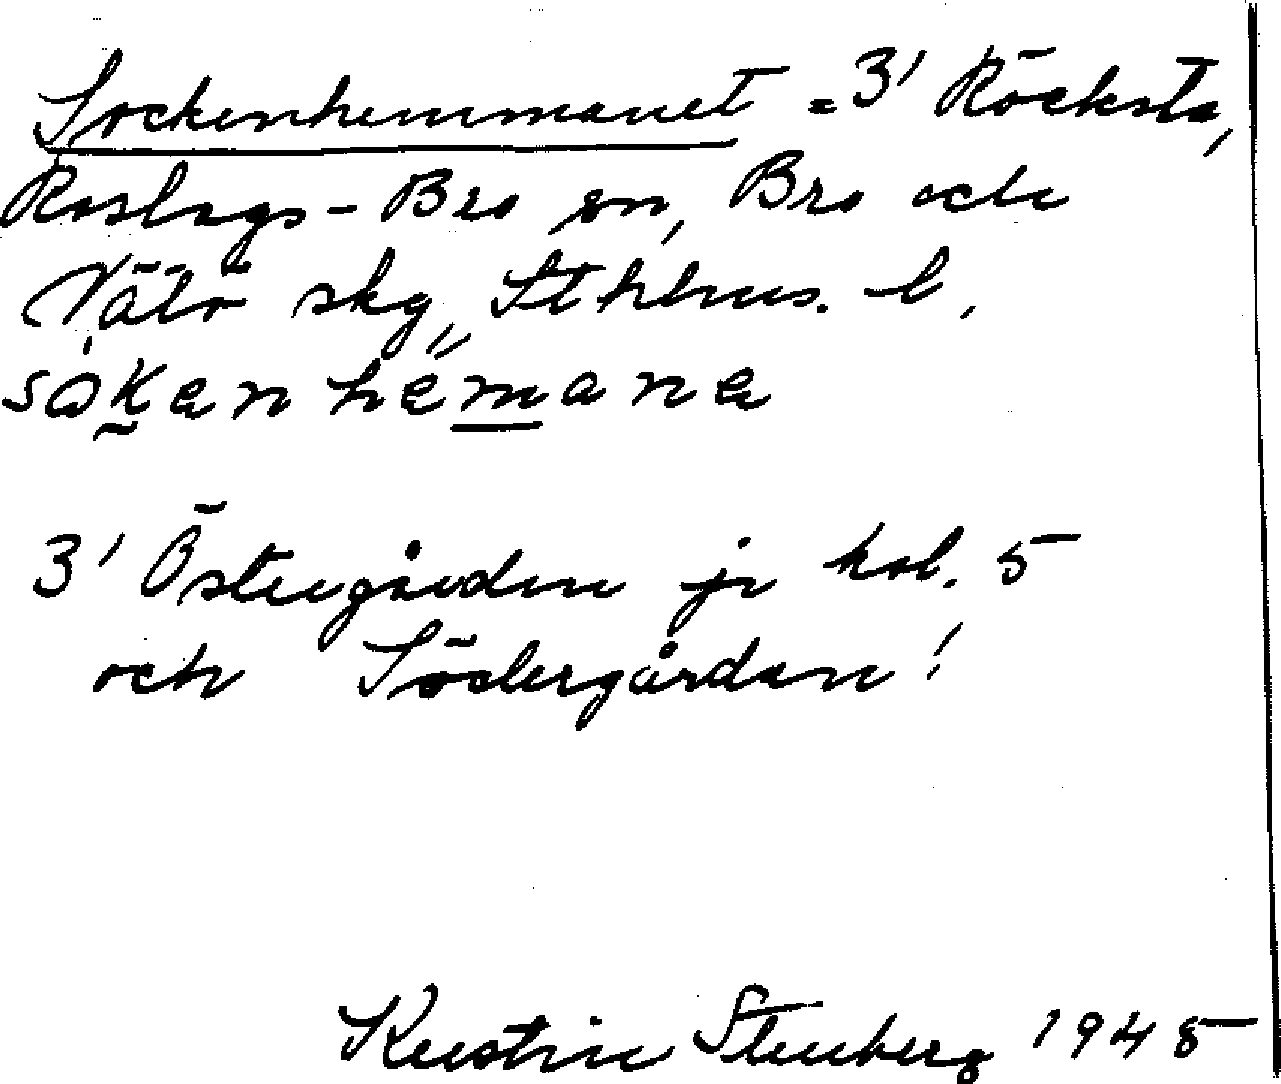 Sockenhemmanet = 3' Röcksta,
Roslags-Bro sn, Bro och
Vätö skg, Sthlms. l.
sòk̰en héma̲ne
3' Östergården jr kol. 5
och Södergården!
Kerstin Stenberg 1945